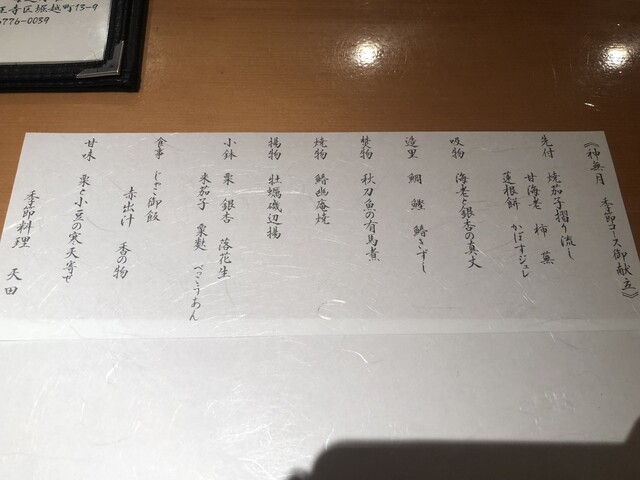 《神無月 季節コース御献立》
先付 焼茄子摺り流し
甘海老 柿 蕪
蓮根餅 かぼすジュレ
吸物 海老と銀杏の真丈
造里 鯛 鰹 鰆きずし
焚物 秋刀魚の有馬煮
焼物 鰆幽庵焼
揚物 牡蠣磯辺揚
小鉢 栗 銀杏 落花生
米茄子 粟麩 べっこうあん
食事 じゃこ御飯
赤出汁 香の物
甘味 栗と小豆の寒天寄せ
季節料理 天田
王寺区堀越町13-9
6776-0039